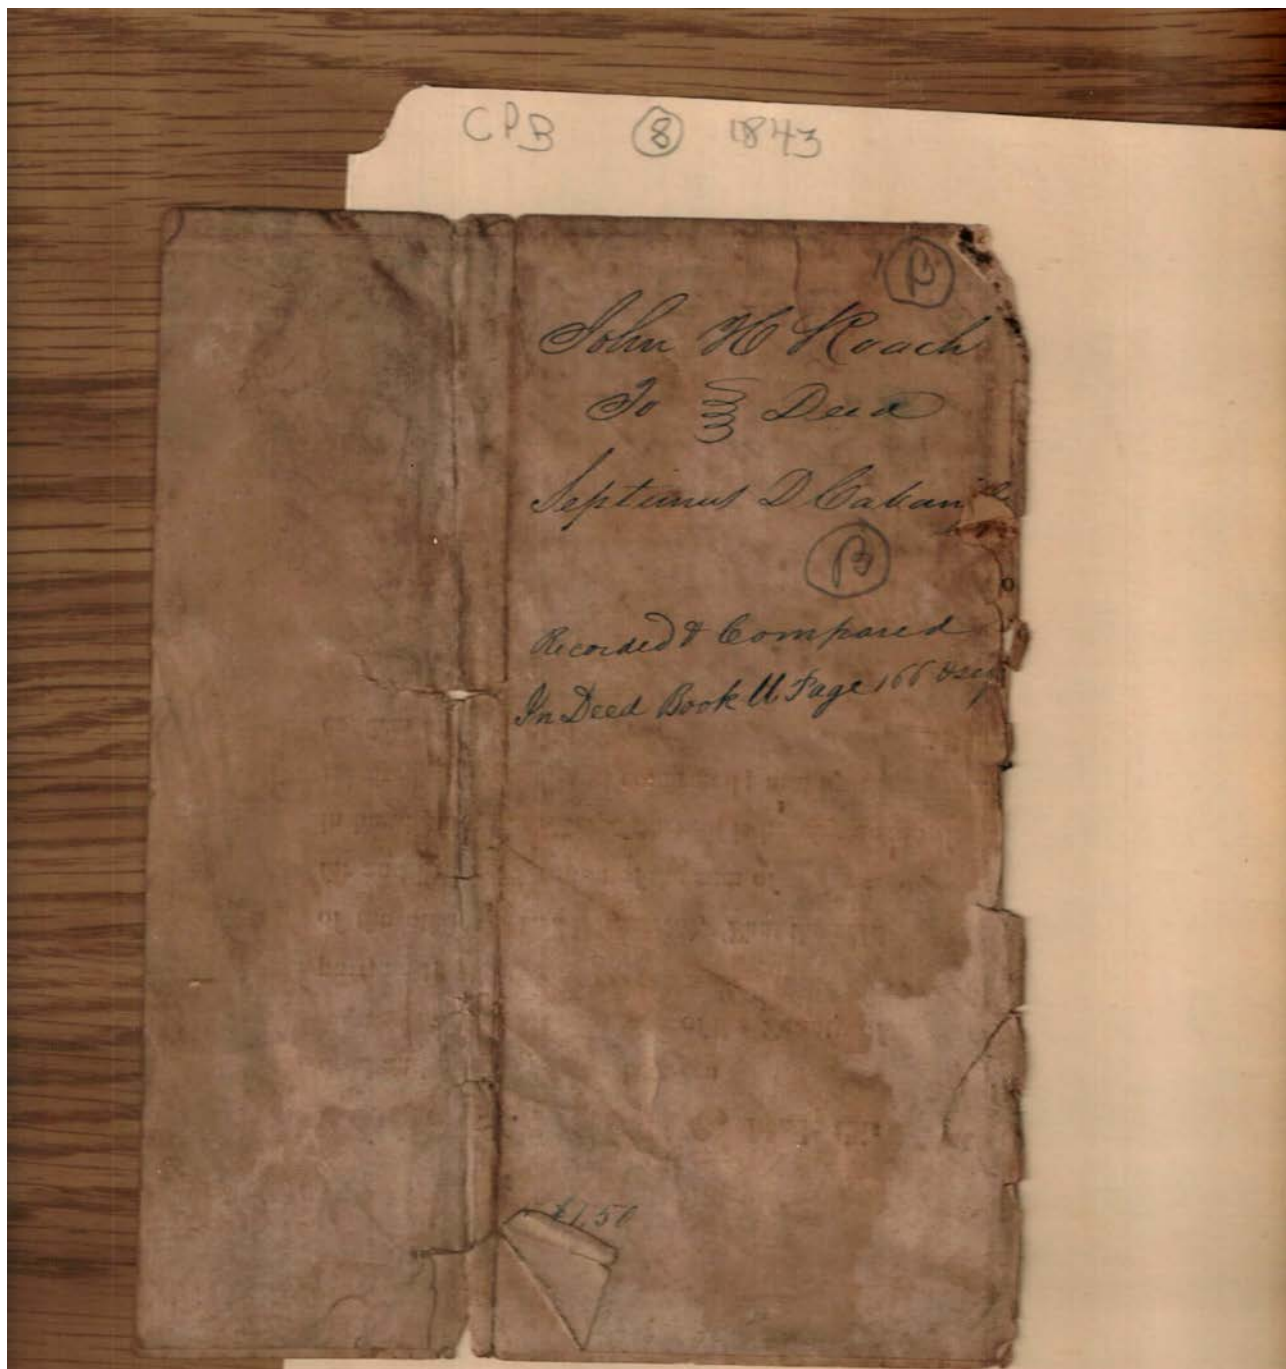 CPB 8 1843
B
John H Roach
To Deed
Septimus D Caban
B
Recorded & Compared
In Deed Book U Page 166 &seq
$1,50